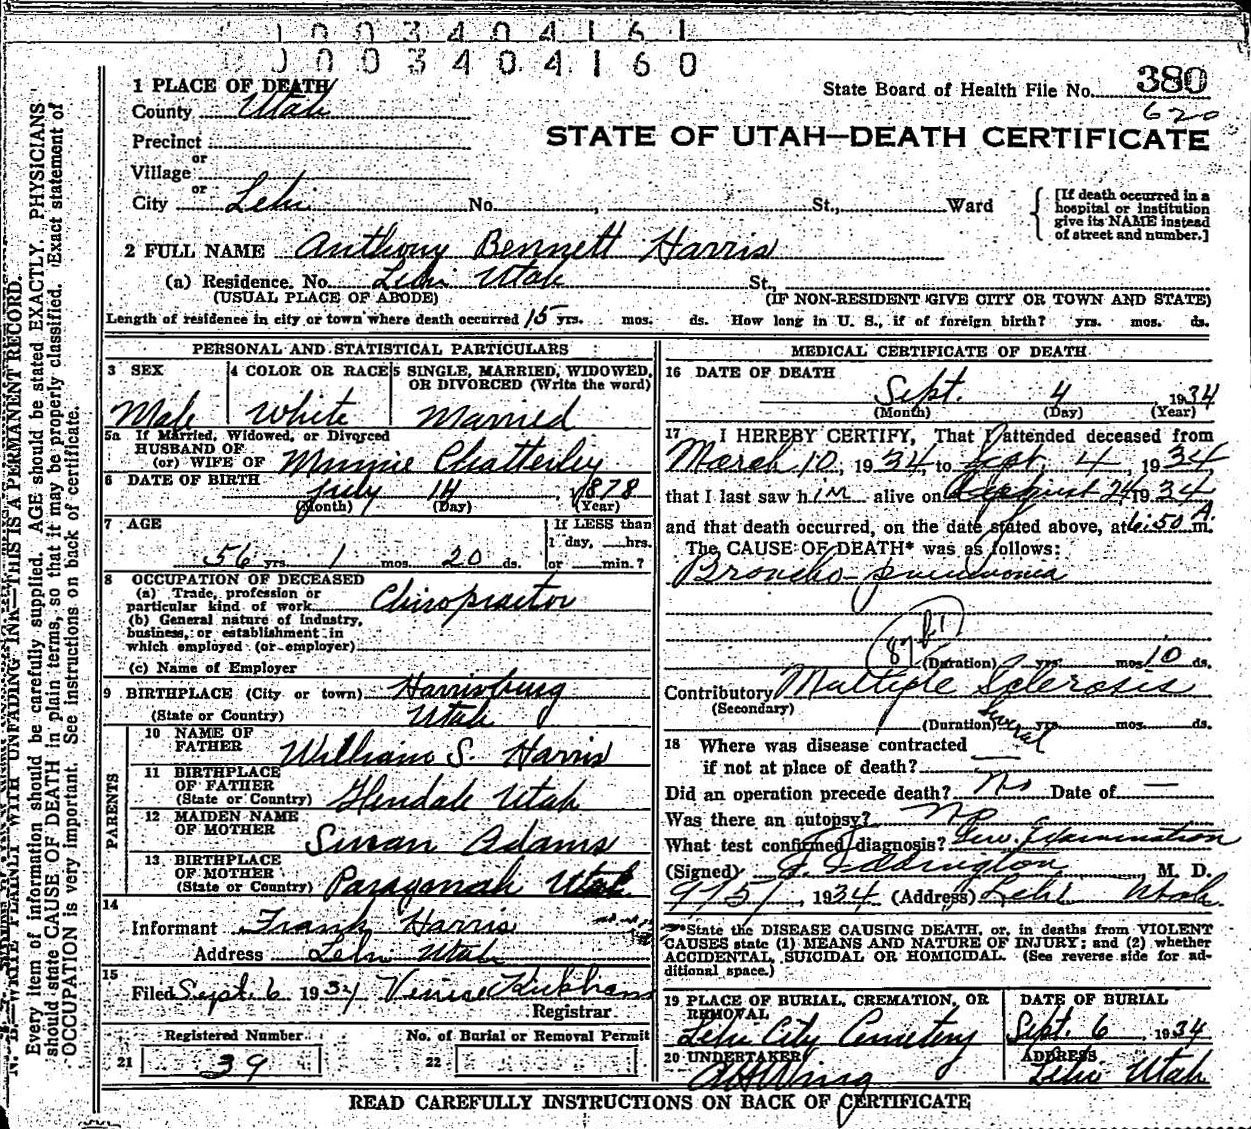 1 0 0 3 4 0 4 1 6 1
0 0 3 4 0 4 1 6 0
1 PLACE OF DEATH
County Utah
State Board of Health File No. 380
620
Precinct
or
Village
or
City Lehi No. , St., Ward
STATE OF UTAH—DEATH CERTIFICATE
[If death occurred in a
hospital or institution
give its NAME instead
of street and number.]
2 FULL NAME Anthony Bennett Harris
(a) Residence. No. Lehi Utah St.,
(USUAL PLACE OF ABODE) (IF NON-RESIDENT GIVE CITY OR TOWN AND STATE)
Length of residence in city or town where death occurred 15 yrs. mos. ds. How long in U. S., if of foreign birth? yrs. mos. ds.
PERSONAL AND STATISTICAL PARTICULARS
3 SEX
Male
4 COLOR OR RACE
White
5 SINGLE, MARRIED, WIDOWED,
OR DIVORCED (Write the word)
Married
5a If Married, Widowed, or Divorced
HUSBAND OF
(or) WIFE OF Minnie Chatterley
6 DATE OF BIRTH
July 14, 1878
(Month) (Day) (Year)
7 AGE
56 yrs. 1 mos. 20 ds.
If LESS than
1 day, hrs.
or min.?
8 OCCUPATION OF DECEASED
(a) Trade, profession or
particular kind of work Chiropractor
(b) General nature of industry,
business, or establishment in
which employed (or employer)
(c) Name of Employer
9 BIRTHPLACE (City or town) Harrisburg
(State or Country) Utah
PARENTS
10 NAME OF
FATHER William S. Harris
11 BIRTHPLACE
OF FATHER
(State or Country) Utah
12 MAIDEN NAME
OF MOTHER Susan Adams
13 BIRTHPLACE
OF MOTHER
(State or Country) Paragonah Utah
14
Informant Frank Harris
Address Lehi Utah
15
Filed Sept. 6 1934 Venice Kirkham
Registrar
Registered Number
21 39
No. of Burial or Removal Permit
22
MEDICAL CERTIFICATE OF DEATH
16 DATE OF DEATH
Sept. 4, 1934
(Month) (Day) (Year)
17 I HEREBY CERTIFY, That I attended deceased from
March 10, 1934 to Sept. 4, 1934
that I last saw him alive on August 24 1934
and that death occurred, on the date stated above, at 6:50 A m.
The CAUSE OF DEATH* was as follows:
Broncho-pneumonia
(Duration) yrs. mos. 10 ds.
Contributory Multiple Sclerosis
(Secondary)
(Duration) Several yrs. mos. ds.
18 Where was disease contracted
if not at place of death? —
Did an operation precede death? No Date of —
Was there an autopsy? no
What test confirmed diagnosis? Examination
(Signed) Eddington, M. D.
9/5/, 1934 (Address) Lehi Utah.
*State the DISEASE CAUSING DEATH, or, in deaths from VIOLENT
CAUSES state (1) MEANS AND NATURE OF INJURY; and (2) whether
ACCIDENTAL, SUICIDAL OR HOMICIDAL. (See reverse side for ad-
ditional space.)
19 PLACE OF BURIAL, CREMATION, OR
REMOVAL
Lehi City Cemetery
DATE OF BURIAL
Sept. 6, 1934
20 UNDERTAKER
ADDRESS
Lehi Utah
READ CAREFULLY INSTRUCTIONS ON BACK OF CERTIFICATE
N. B.—WRITE PLAINLY WITH UNFADING INK—THIS IS A PERMANENT RECORD.
Every item of information should be carefully supplied. AGE should be stated EXACTLY. PHYSICIANS
should state CAUSE OF DEATH in plain terms, so that it may be properly classified. Exact statement of
OCCUPATION is very important. See instructions on back of certificate.